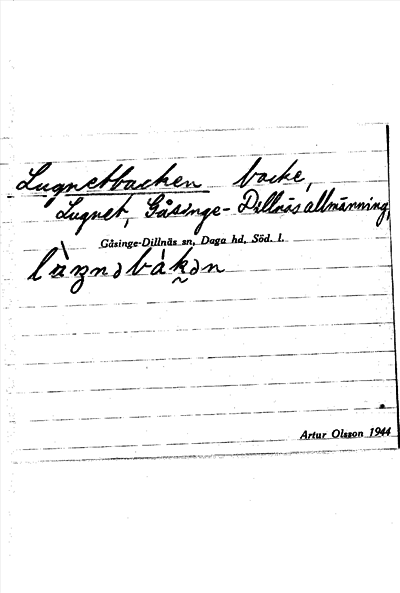 Lugnetbacken backe,
Lugnet, Gåsinge-Dillnäs allmänning,
Gåsinge-Dillnäs sn, Daga hd, Söd. l.
Artur Olsson 1944